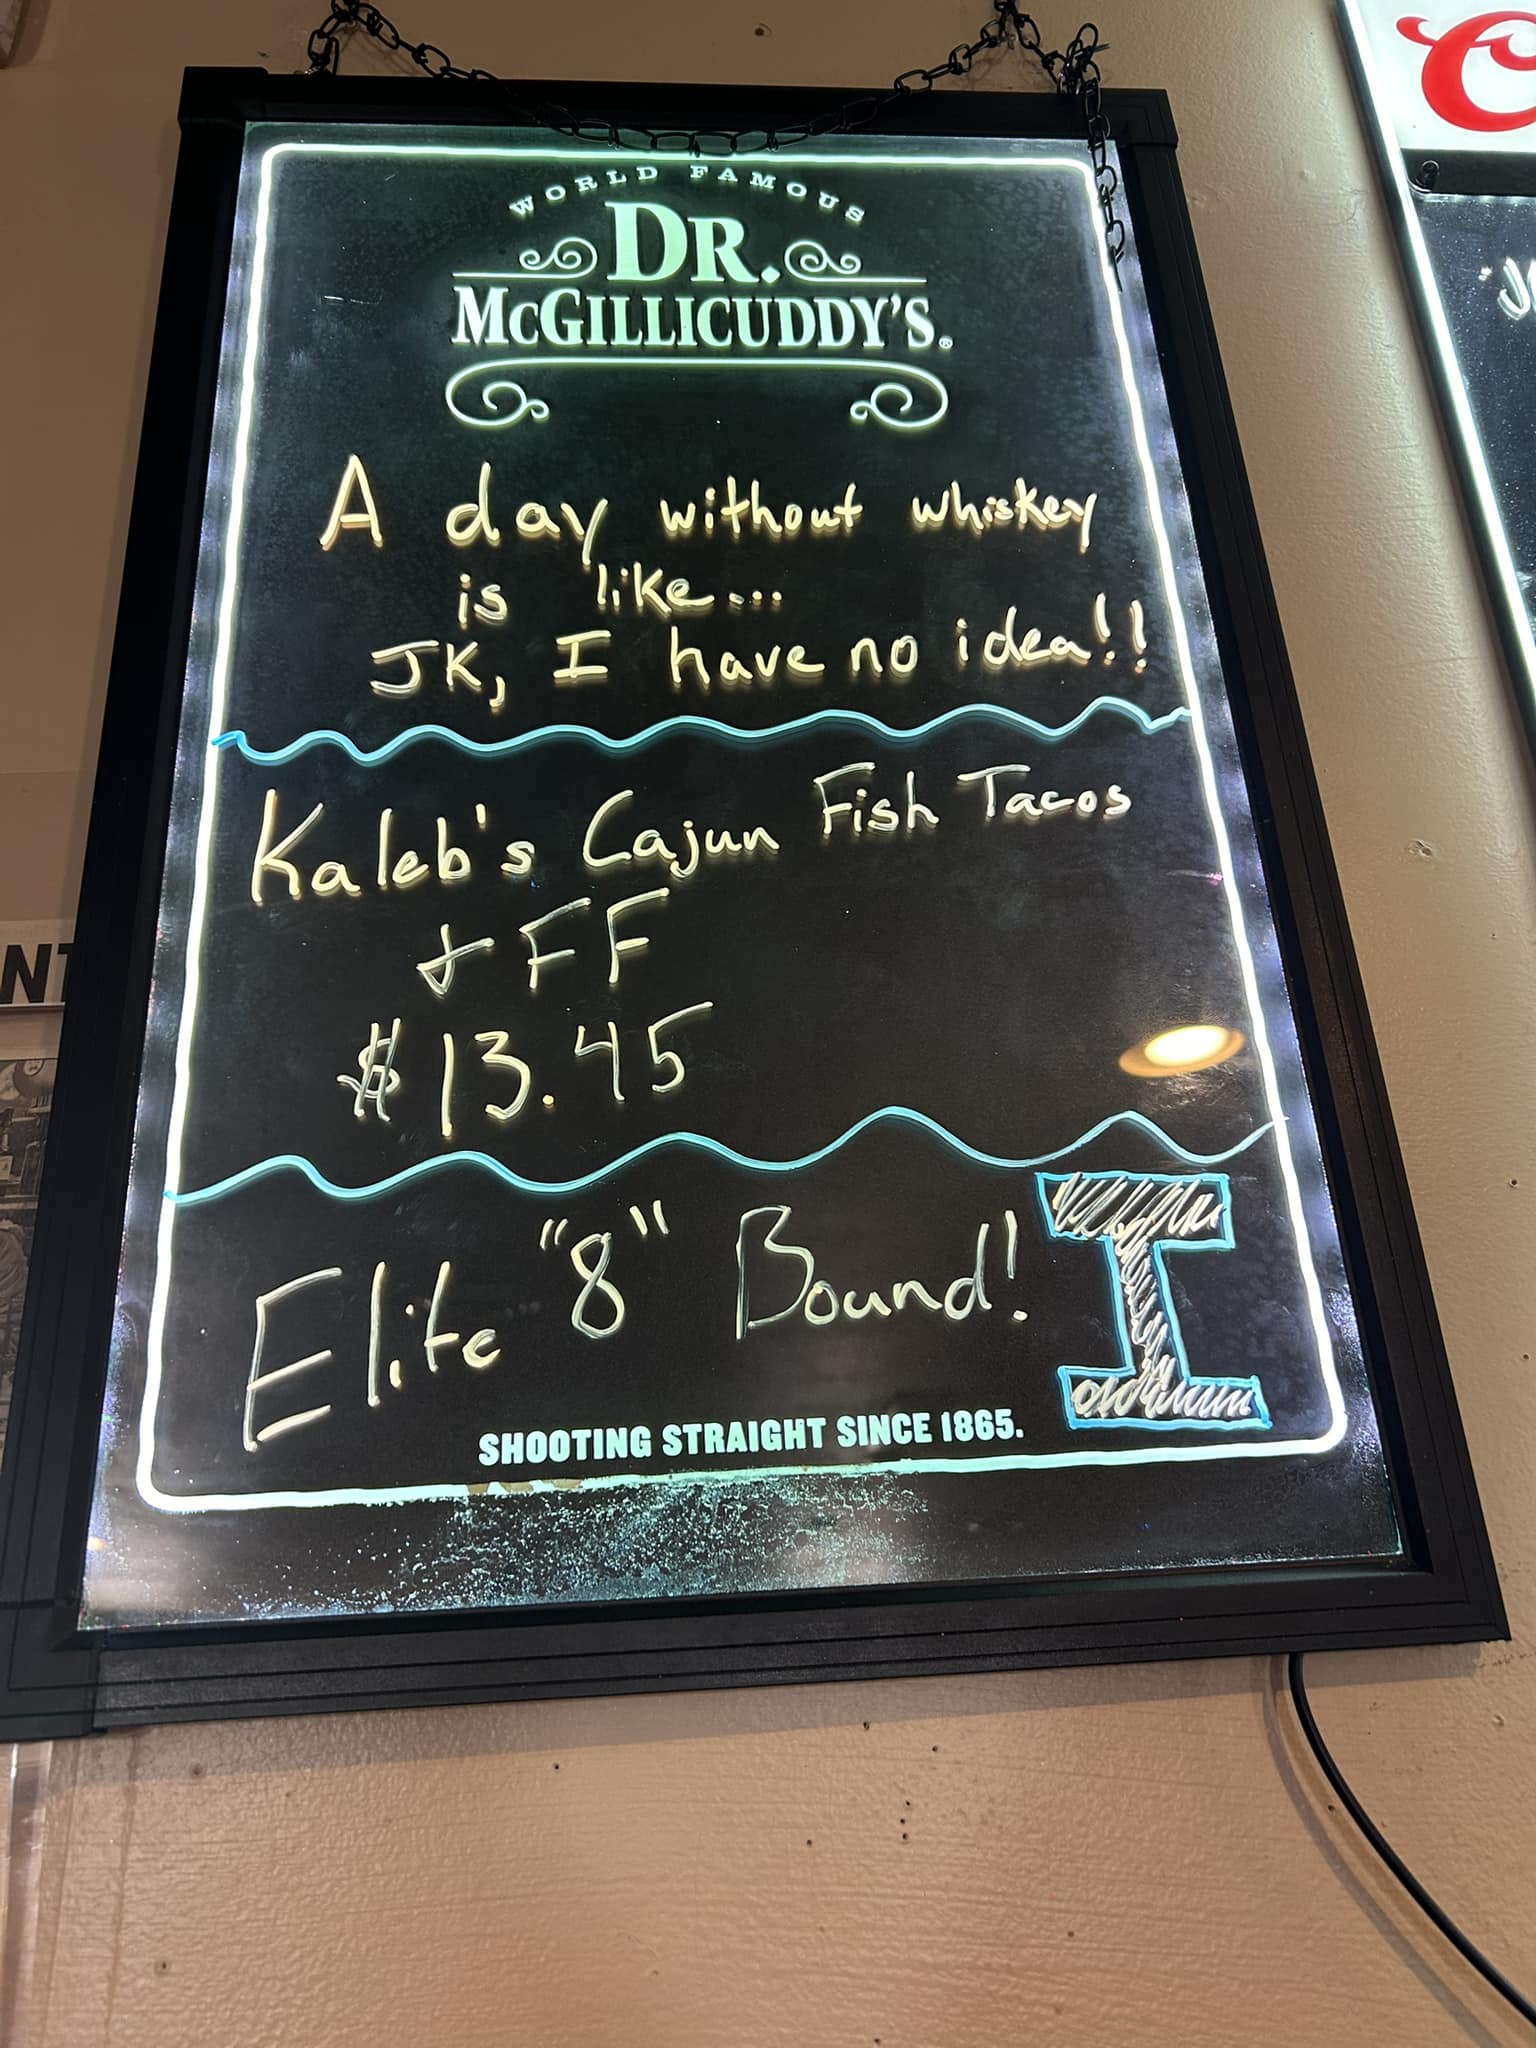 WORLD FAMOUS
DR.
MCGILLICUDDY'S®
A day without whiskey
is like...
JK, I have no idea!!
Kaleb's Cajun Fish Tacos
+ FF
$13.45
Elite "8" Bound! I
SHOOTING STRAIGHT SINCE 1865.
NT
C